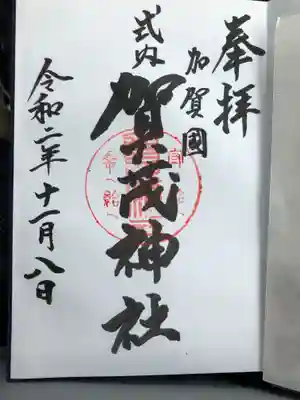 奉拝
加賀國
式内
賀茂神社
令和二年十一月八日